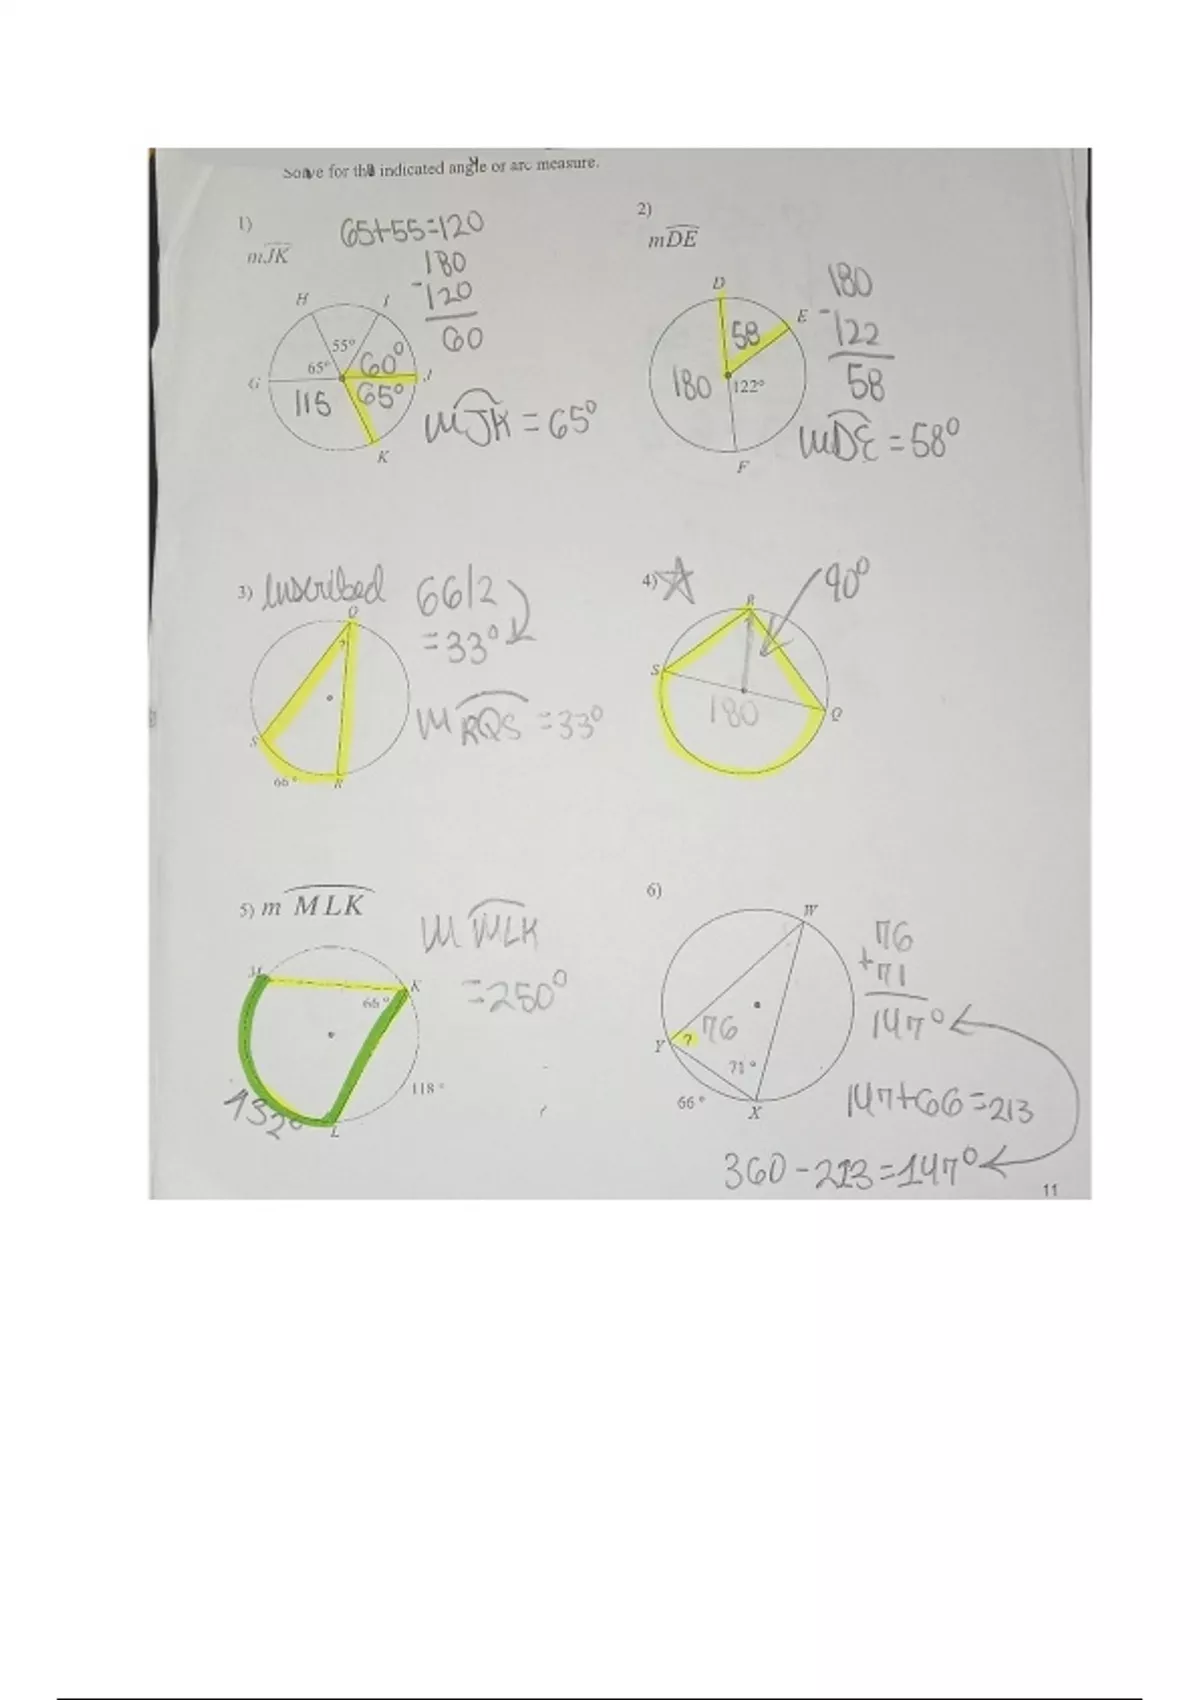 Solve for the indicated angle or arc measure.
1)
mJK
65+55=120
180
-120
60
H
I
55°
65°
60°
G
J
115
65°
K
mJK = 65°
2)
mDE
D
E
58
180
122°
F
180
-122
58
mDE = 58°
3) Inscribed
66/2
= 33°
Q
?
S
66°
R
m RQS = 33°
4)
90°
R
S
180
Q
5) m MLK
m MLK
= 250°
M
K
66°
118°
132°
L
6)
W
76
+71
147°
Y
?
76
71°
66°
X
147+66=213
360-213=147°
11